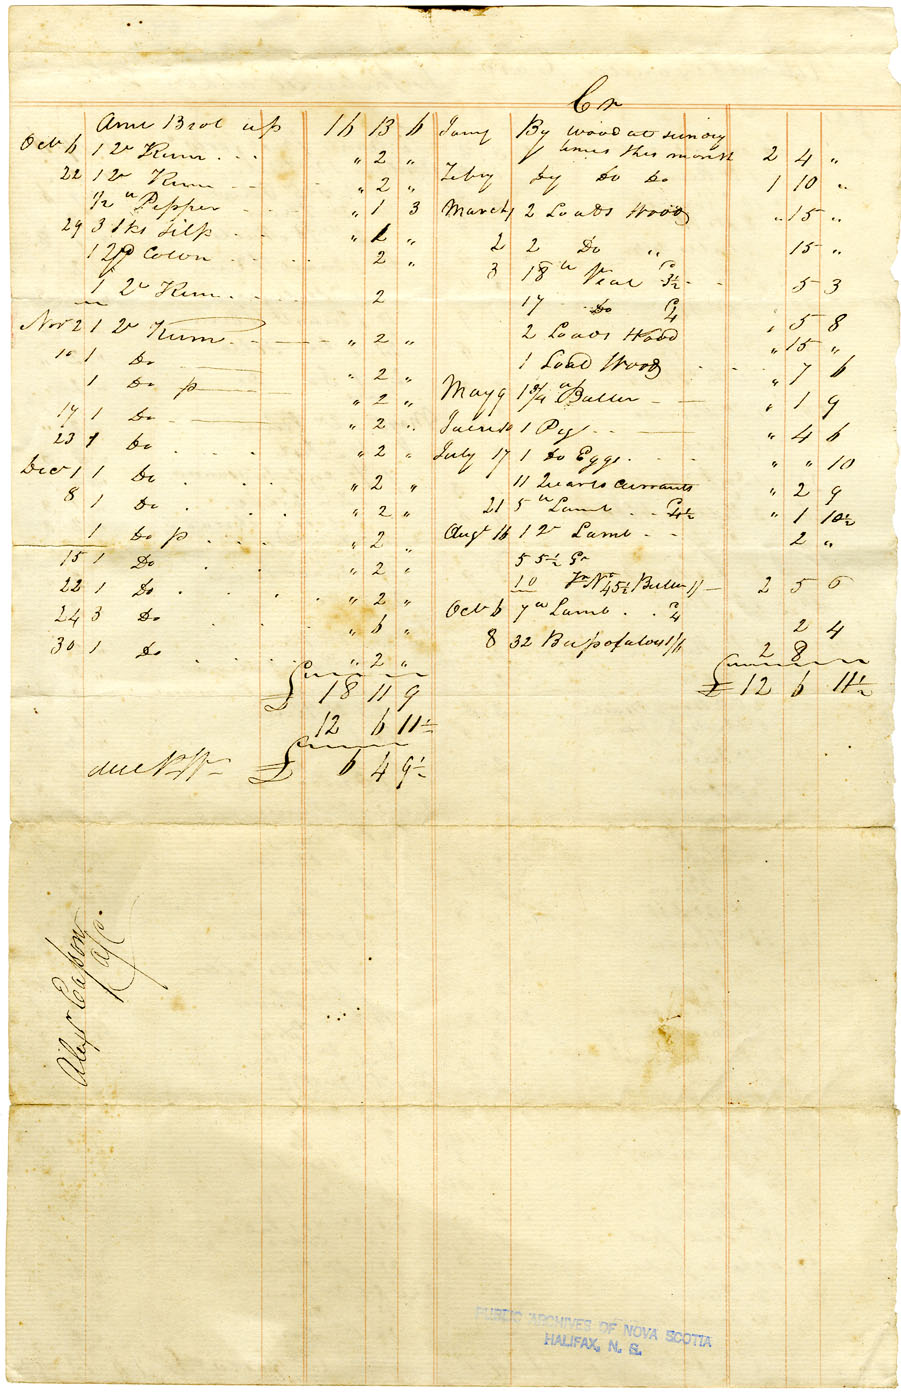 Cr
Amt Brot up 16 13 6
Octr 6 1 Qr Rum . . . " 2 "
22 1 Qr Rum " 2 "
1/2 " Pepper " 1 3
29 3 Silk " 2 "
1 Cotton 2 "
1 Qr Rum 2
Novr 2 1 Qr Rum " 2 "
10 1 Do " 2 "
1 Do p " 2 "
17 1 Do " 2 "
23 1 Do " 2 "
Decr 1 1 Do " 2 "
8 1 Do " 2 "
1 Do p " 2 "
15 1 Do " 2 "
22 1 Do " 2 "
24 3 Do " 6 "
30 1 Do " 2 "
£ 18 11 9
12 6 11½
£ 6 4 9½
Jany By Wood at sundry
times this month 2 4 "
Febry By Do Do 1 10 "
March 1 2 Loads Wood " 15 "
2 2 Do " 15 "
3 18 " Veal 3½ 5 3
17 Do 4 " 5 8
2 Loads Wood " 15 "
1 Load Wood " 7 6
May 9 1 3/4 " Butter " 1 9
1 Pig " 4 6
July 17 1 Do Eggs " " 10
11 Quarts Currants " 2 9
21 5 " Lamb 4½ " 1 10½
Augt 16 1 Qr Lamb 2 "
5 5½
10 45½ Butter 1/ 2 5 6
Octr 6 7 " Lamb 4 2 4
8 32 Bu potatoes 1/6 2 8
£ 12 6 11½
Alexr Easson
a/c.
PUBLIC ARCHIVES OF NOVA SCOTIA
HALIFAX, N. S.